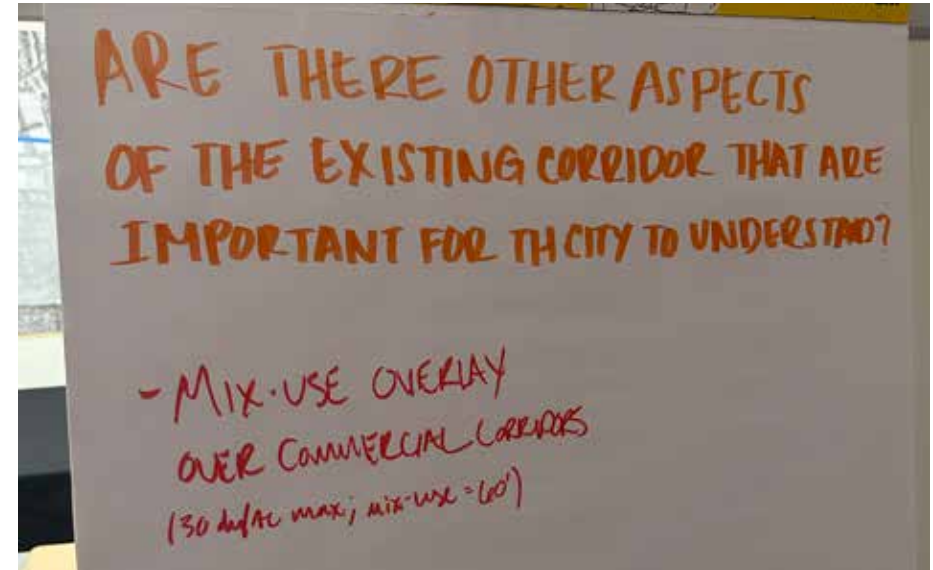 ARE THERE OTHER ASPECTS
OF THE EXISTING CORRIDOR THAT ARE
IMPORTANT FOR TH CITY TO UNDERSTAD?
- MIX-USE OVERLAY
OVER COMMERCIAL CORRIDORS
(30 du/AC max; mix-use = 60')